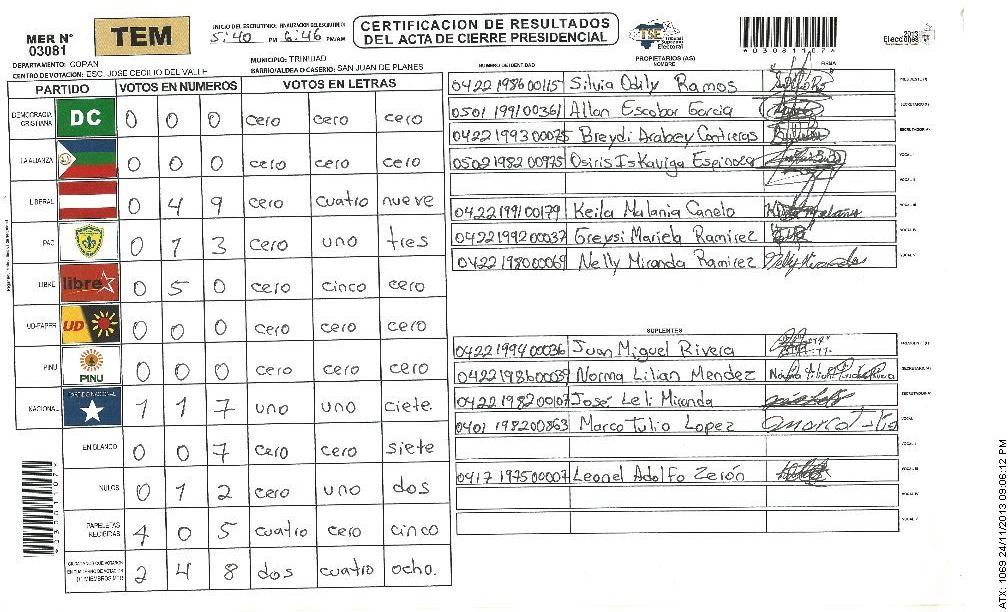 MER N° 03081
TEM
INICIO DEL ESCRUTINIO: 5:40 PM FINALIZACION DEL ESCRUTINIO 6:46 PM/AM
CERTIFICACION DE RESULTADOS
DEL ACTA DE CIERRE PRESIDENCIAL
TSE Tribunal Supremo Electoral
*03081107*
DEPARTAMENTO: COPAN
MUNICIPIO: TRINIDAD
CENTRO DE VOTACIÓN: ESC. JOSE CECILIO DEL VALLE
BARRIO/ALDEA O CASERIO: SAN JUAN DE PLANES
PARTIDO VOTOS EN NUMEROS VOTOS EN LETRAS
DEMOCRACIA CRISTIANA DC 0 0 0 cero cero cero
LA ALIANZA 0 0 0 cero cero cero
LIBERAL 0 4 9 cero cuatro nueve
PAC 0 1 3 cero uno tres
LIBRE libre 0 5 0 cero cinco cero
UD-FAPER UD 0 0 0 cero cero cero
PINU PINU 0 0 0 cero cero cero
NACIONAL 1 1 7 uno uno ciete.
EN BLANCO 0 0 7 cero cero siete
NULOS 0 1 2 cero uno dos
PAPELETAS RECIBIDAS 4 0 5 cuatro cero cinco
CIUDADANOS QUE VOTARON 2 4 8 dos cuatro ocho.
PROPIETARIOS (AS)
NUMERO DE IDENTIDAD NOMBRE FIRMA
0422198600115 Silvia Odily Ramos
0501199100361 Allan Escobar Garcia
0422199300075 Breydi Arabey Contreras
0502198200975 Osiris Iskaviga Espinoza
0422199100179 Keila Malania Canelo
0422199200037 Greysi Mariela Ramirez
0422198000069 Nelly Miranda Ramirez
SUPLENTES
0422199400036 Juan Miguel Rivera
0422198600039 Norma Lilian Mendez
0422198200107 José Leli Miranda
0401198200863 Marco Tulio Lopez
0417197500007 Leonel Adolfo Zerón
ATX: 1069 24/11/2013 09:06:12 PM